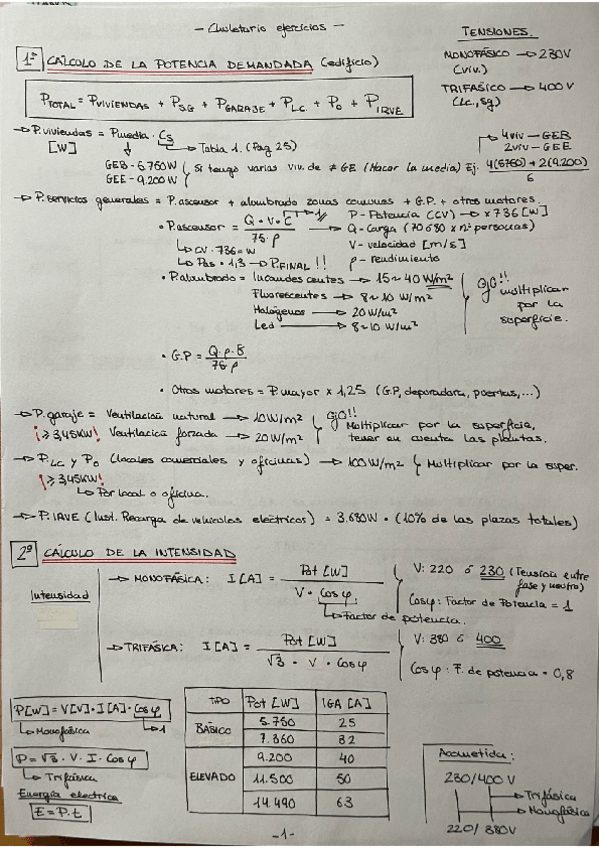 - Chuletario ejercicios -
TENSIONES.
MONOFÁSICO → 230V
(viv.)
TRIFÁSICO → 400V
(Lc., sg)
1º CÁLCULO DE LA POTENCIA DEMANDADA (edificio)
PTOTAL = PVIVIENDAS + PSG + PGARAJE + PLC + PO + PIRVE
→ P.viviendas = Pmedia · Cs
[W]
→ Tabla 1. (Pag 25)
GEB - 5.750W
GEE - 9.200W
Si tengo varias viv. de ≠ GE (Hacer la media) Ej. 4(5750) + 2(9.200)
6
4 viv - GEB
2 viv - GEE
→ P.servicios generales = P.ascensor + alumbrado zonas comunes + G.P. + otros motores.
• P.ascensor = Q · V · C
75 · ρ
→ 1/2
↳ CV · 736 = W
↳ Pas · 1,3 → P.FINAL !!
P - Potencia (CV) → x 736 [W]
Q - Carga (70 ó 80 x nº personas)
V - velocidad [m/s]
ρ - rendimiento
• P.alumbrado = Incandescentes → 15 ~ 40 W/m²
Fluorescentes → 8 ~ 10 W/m²
Halógenos → 20 W/m²
Led → 8 ~ 10 W/m²
OjO!!
multiplicar
por la
superficie.
• G.P = Q · ρ · 8
75 · ρ
• Otros motores = P.mayor x 1,25 (G.P, depuradora, puertas, ...)
→ P. garaje = Ventilación natural → 10W/m²
¡≥3,45KW! Ventilación forzada → 20 W/m²
OjO!!
Multiplicar por la superficie,
tener en cuenta las plantas.
→ P.LC y PO (locales comerciales y oficinas) → 100 W/m² Multiplicar por la super.
¡≥3,45KW!
↳ Por local o oficina.
→ P.IRVE (Inst. Recarga de vehículos eléctricos) = 3.680W · (10% de las plazas totales)
2º CÁLCULO DE LA INTENSIDAD
Intensidad
→ MONOFÁSICA: I [A] = Pot [W]
V · Cos φ
→ Factor de potencia.
V: 220 ó 230 (Tensión entre
fase y neutro)
Cos φ: Factor de Potencia = 1
→ TRIFÁSICA: I [A] = Pot [W]
√3 · V · Cos φ
V: 380 ó 400
Cos φ: F. de potencia = 0,8
P[W] = V[V] · I[A] · Cos φ
↳ Monofásica
→ 1
P = √3 · V · I · Cos φ
↳ Trifásica
Energía eléctrica
E = P.t
TIPO Pot [W] IGA [A]
BÁSICO 5.750 25
7.360 32
ELEVADO 9.200 40
11.500 50
14.490 63
Acometida:
230/400 V
→ Trifásica
→ Monofásica
220/380V
- 1 -